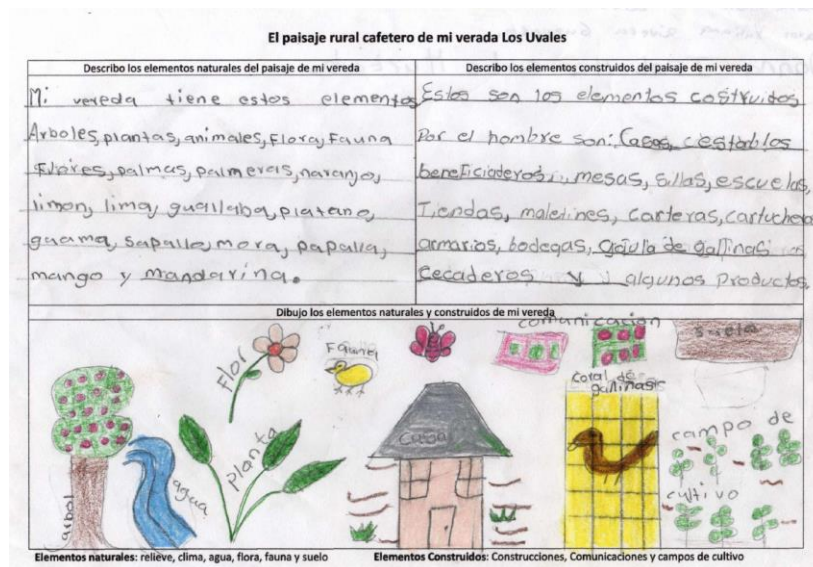 El paisaje rural cafetero de mi verada Los Uvales
Describo los elementos naturales del paisaje de mi vereda
Mi vereda tiene estos elementos
Arboles, plantas, animales, Flora, Fauna
Flores, palmas, palmeras, naranjo,
limon, lima, guallaba, platano,
guama, sapallo, mora, papalla,
mango y mandarina.
Describo los elementos construidos del paisaje de mi vereda
Estos son los elementos costruidos
Por el hombre son: Casas, establos
beneficiaderos, mesas, sillas, escuelas,
Tiendas, maletines, carteras, cartuchera
armarios, bodegas, gaula de gallinas
Cecaderos y algunos productos
Dibujo los elementos naturales y construidos de mi vereda
comunicación
suelo
Flor
Fauna
Coral de
gallinas
casa
campo de
cultivo
planta
agua
arbol
Elementos naturales: relieve, clima, agua, flora, fauna y suelo
Elementos Construidos: Construcciones, Comunicaciones y campos de cultivo